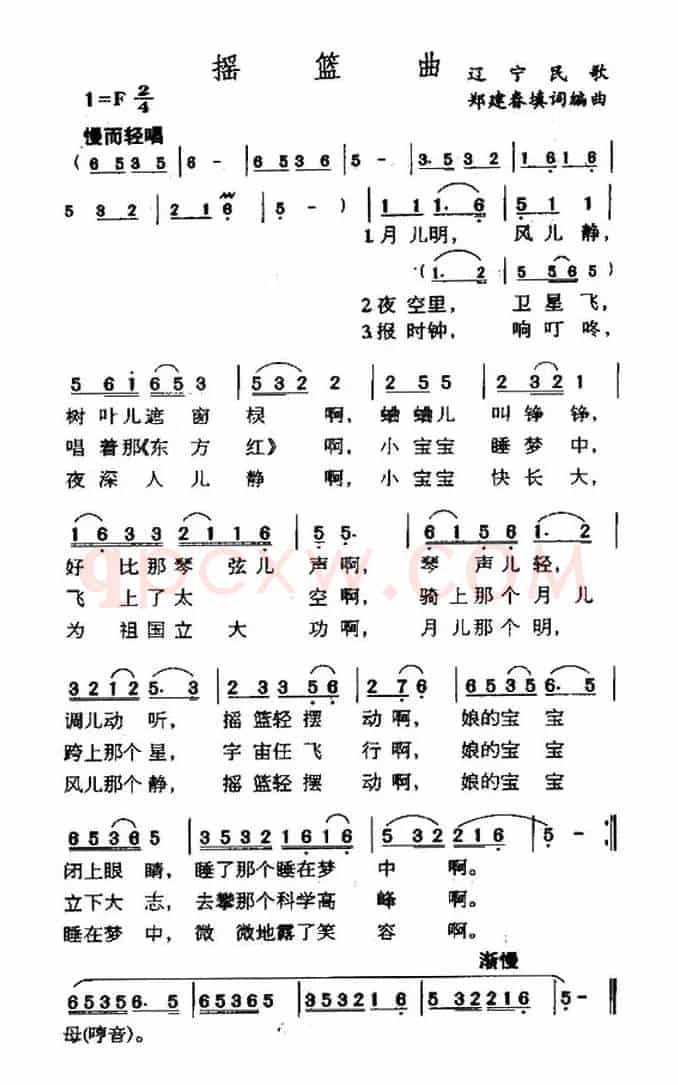 摇 篮 曲
辽宁民歌
1=F 2/4
郑建春填词编曲
慢而轻唱
( 6 5 3 5 | 6 - | 6 5 3 6 | 5 - | 3· 5 3 2 | 1 6 1 6 |
5 3 2 | 2 1 6 | 5 - ) | 1 1 1· 6 | 5 1 1 |
1月儿明, 风儿静,
(1· 2 | 5 5 6 5)
2夜空里, 卫星飞,
3报时钟, 响叮咚,
5 6 1 6 5 3 | 5 3 2 2 | 2 5 5 | 2 3 2 1 |
树叶儿遮窗棂 啊, 蛐蛐儿 叫铮铮,
唱着那《东方红》 啊, 小宝宝 睡梦中,
夜深人儿静 啊, 小宝宝 快长大,
1 6 3 3 2 1 1 6 | 5 5· | 6 1 5 6 1· 2 |
好比那琴弦儿声啊, 琴声儿轻,
飞上了太 空啊, 骑上那个月儿
为祖国立大 功啊, 月儿那个明,
3 2 1 2 5· 3 | 2 3 3 5 6 | 2 7 6 | 6 5 3 5 6· 5 |
调儿动听, 摇篮轻摆动啊, 娘的宝宝
跨上那个星, 宇宙任飞行啊, 娘的宝宝
风儿那个静, 摇篮轻摆动啊, 娘的宝宝
6 5 3 6 5 | 3 5 3 2 1 6 1 6 | 5 3 2 2 1 6 | 5 - :||
闭上眼睛, 睡了那个睡在梦 中 啊。
立下大志, 去攀那个科学高 峰 啊。
睡在梦中, 微微地露了笑 容 啊。
渐慢
6 5 3 5 6· 5 | 6 5 3 6 5 | 3 5 3 2 1 6 1 6 | 5 3 2 2 1 6 | 5 - ||
母(哼音)。
qpcxw.com